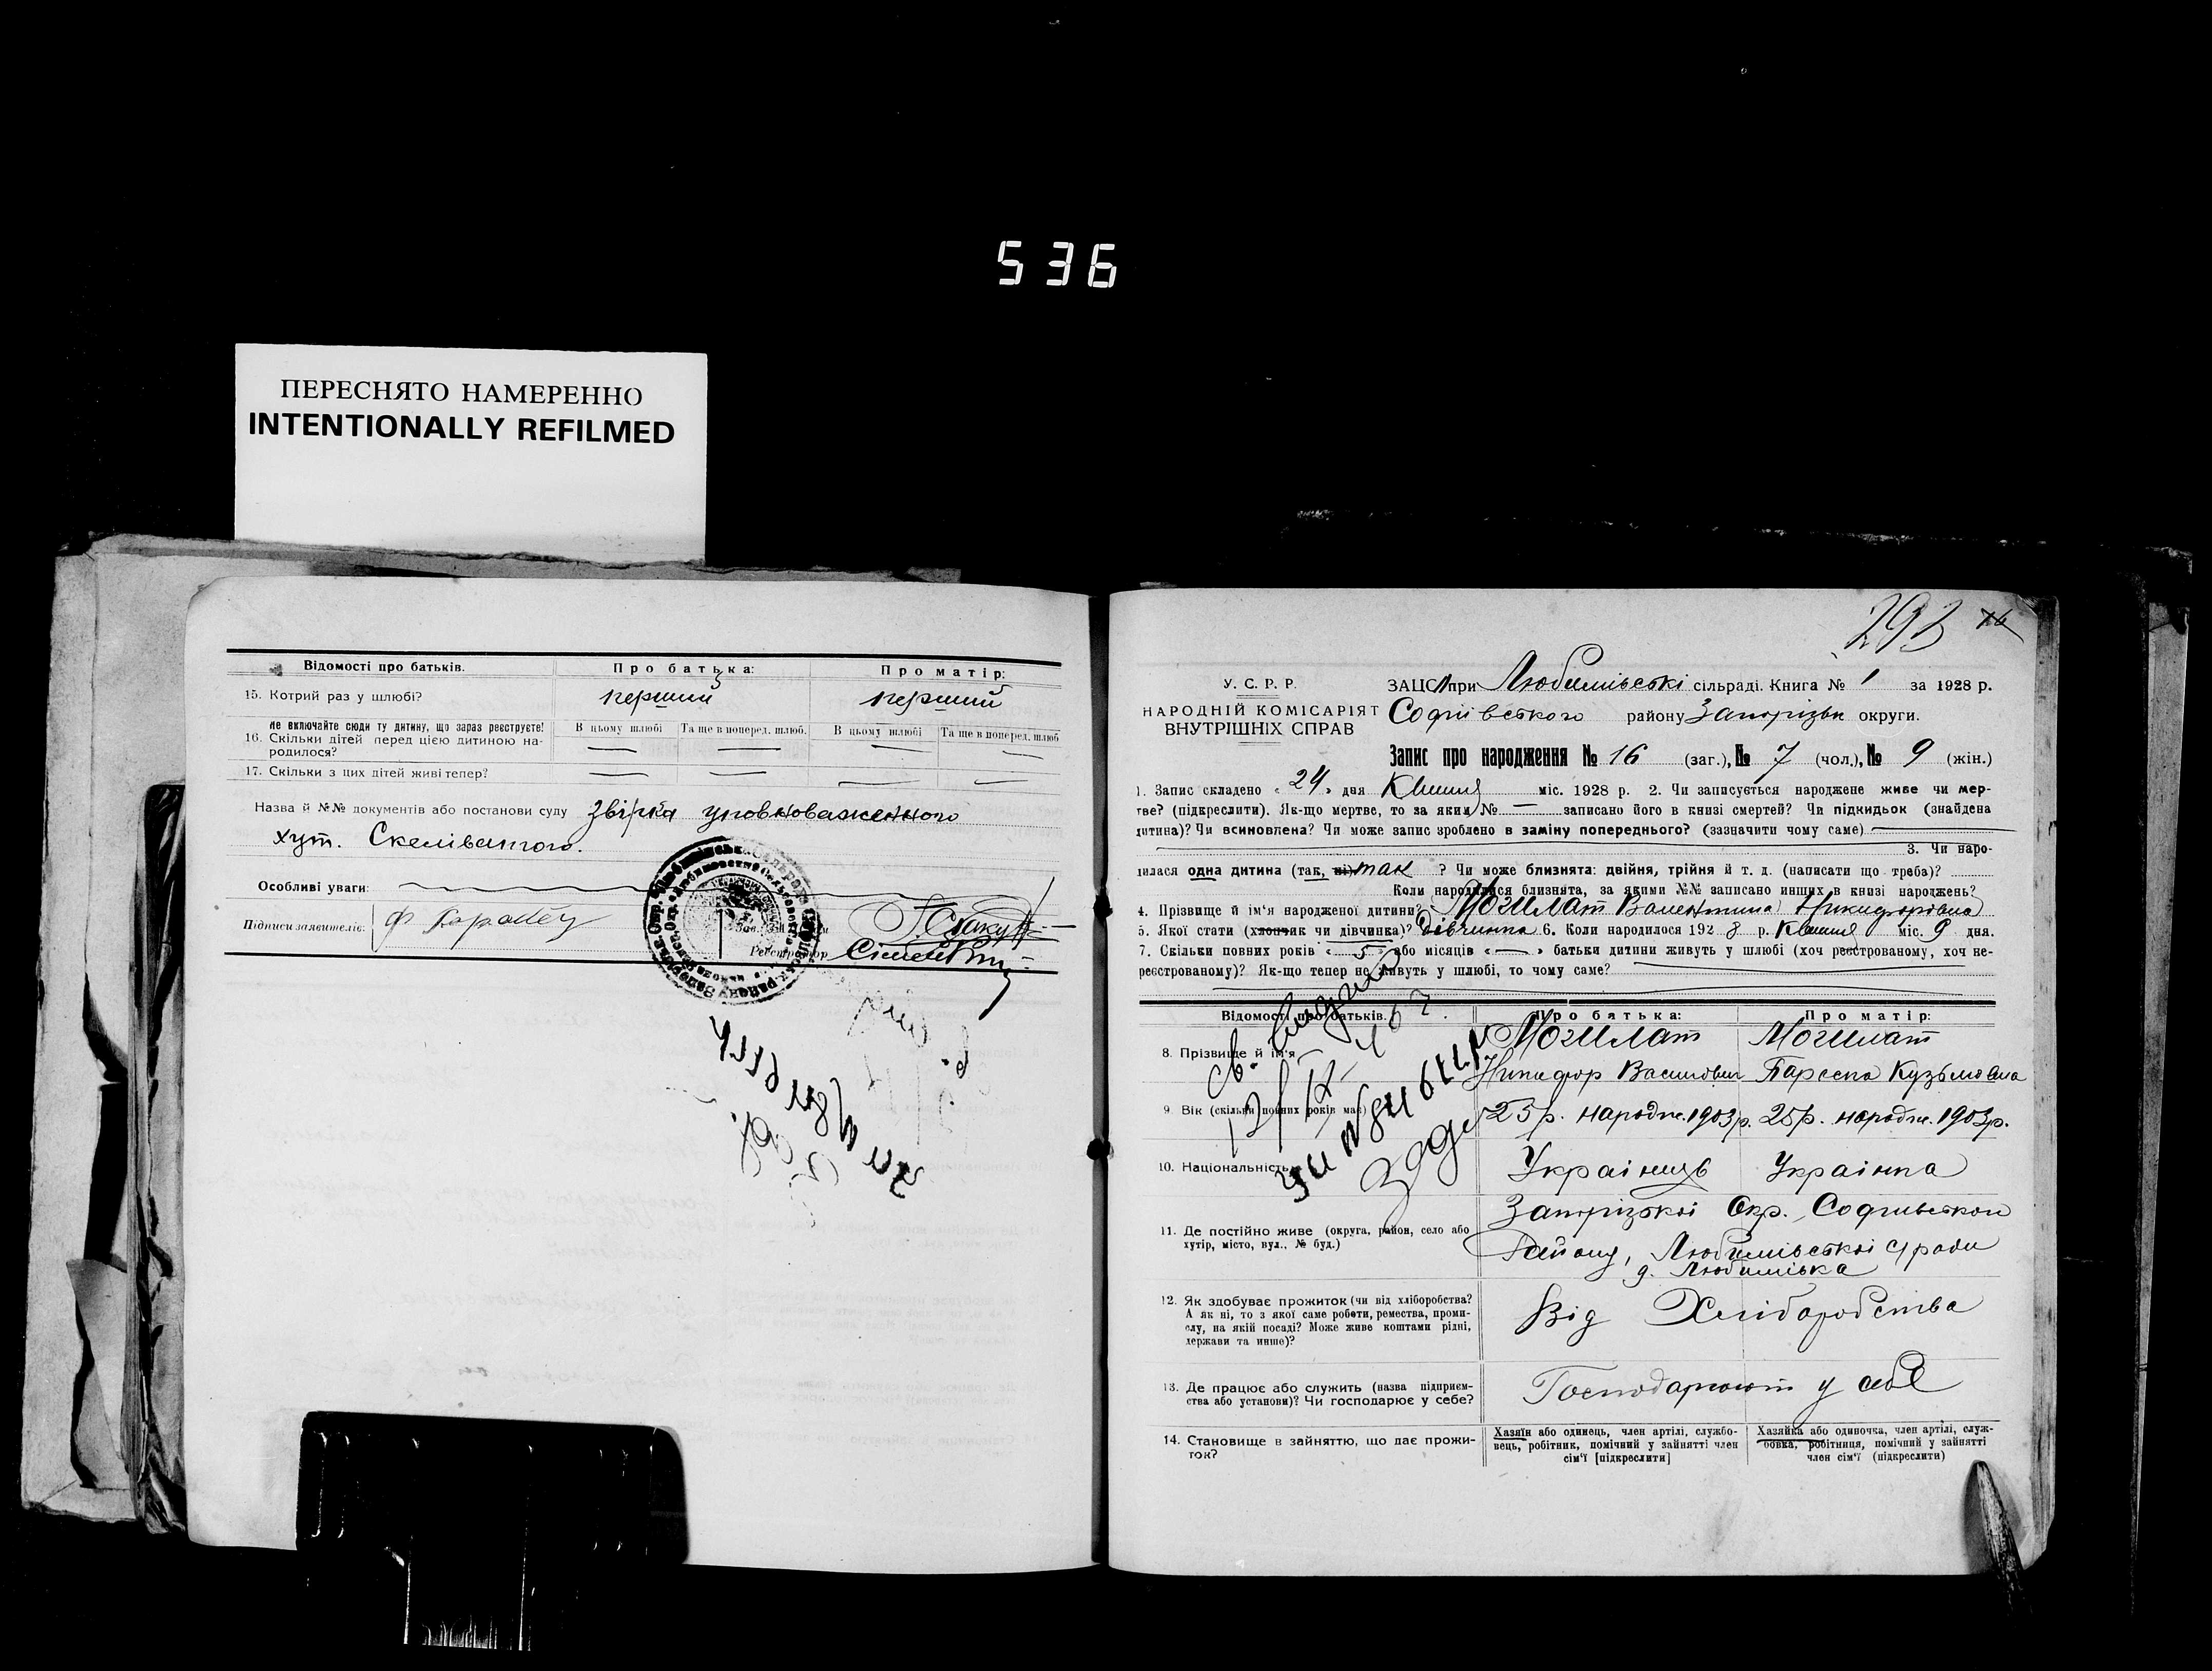 536
ПЕРЕСНЯТО НАМЕРЕННО
INTENTIONALLY REFILMED
Відомості про батьків. Про батька: Про матір:
15. Котрий раз у шлюбі? перший перший
Не включайте сюди ту дитину, що зараз реєструєте! В цьому шлюбі Та ще в поперед. шлюб. В цьому шлюбі Та ще в поперед. шлюб
16. Скільки дітей перед цією дитиною на-
родилося? — — — —
17. Скільки з цих дітей живі тепер? — — — —
Назва й №№ документів або постанови суду Звірка уповноваженного
хут. Скелеватого.
Особливі уваги:
Підписи заявителів: Ф
Реєстратор
293 16
У. С. Р. Р.
НАРОДНІЙ КОМІСАРІЯТ
ВНУТРІШНІХ СПРАВ
ЗАЦС при Любимівські сільраді. Книга № 1 за 1928 р.
Софіївського району Запорізьк округи.
Запис про народження № 16 (заг.), № 7 (чол.), № 9 (жін.)
1. Запис складено « 24 » дня Квітня міс. 1928 р. 2. Чи записується народжене живе чи мер-
тве? (підкреслити). Як-що мертве, то за яким № — записано його в книзі смертей? Чи підкидьок (знайдена
дитина)? Чи всиновлена? Чи може запис зроблено в заміну попереднього? (зазначити чому саме)
3. Чи наро-
дилася одна дитина (так, ні) так ? Чи може близнята: двійня, трійня й т. д. (написати що треба)?
Коли народилися близнята, за якими №№ записано инших в книзі народжень?
4. Прізвище й ім'я народженої дитини? Могилат Валентина Никифоровна
5. Якої стати (хлопчик чи дівчинка)? дівчинка 6. Коли народилося 192 8 р. Квітня міс. 9 дня.
7. Скільки повних років « 5 » або місяців « — » батьки дитини живуть у шлюбі (хоч реєстрованому, хоч не-
реєстрованому)? Як-що тепер не живуть у шлюбі, то чому саме?
Відомості про батьків. Про батька: Про матір:
8. Прізвище й ім'я Могилат Могилат
Никифор Василович Параска Кузьмовна
9. Вік (скільки повних років має) 25 р. народж. 1903 р. 25 р. народж. 1903 р.
10. Національність Українець Українка
11. Де постійно живе (округа, район, село або
хутір, місто, вул., № буд.) Запорізької Окр. Софіївського
Району, Любимівської с/ради
д. Любимівка
12. Як здобуває прожиток (чи від хліборобства?
А як ні, то з якої саме роботи, ремества, проми-
слу, на якій посаді? Може живе коштами рідні,
держави та инше)? Від Хліборобства
13. Де працює або служить (назва підприєм-
ства або установи)? Чи господарює у себе? Господарюют у себе
14. Становище в зайняттю, що дає прожи-
ток?
Хазяїн або одинець, член артілі, службо-
вець, робітник, помічний у зайнятті член
сім'ї [підкреслити]
Хазяйка або одиночка, член артілі, служ-
бовка, робітниця, помічний у зайнятті
член сім'ї (підкреслити)